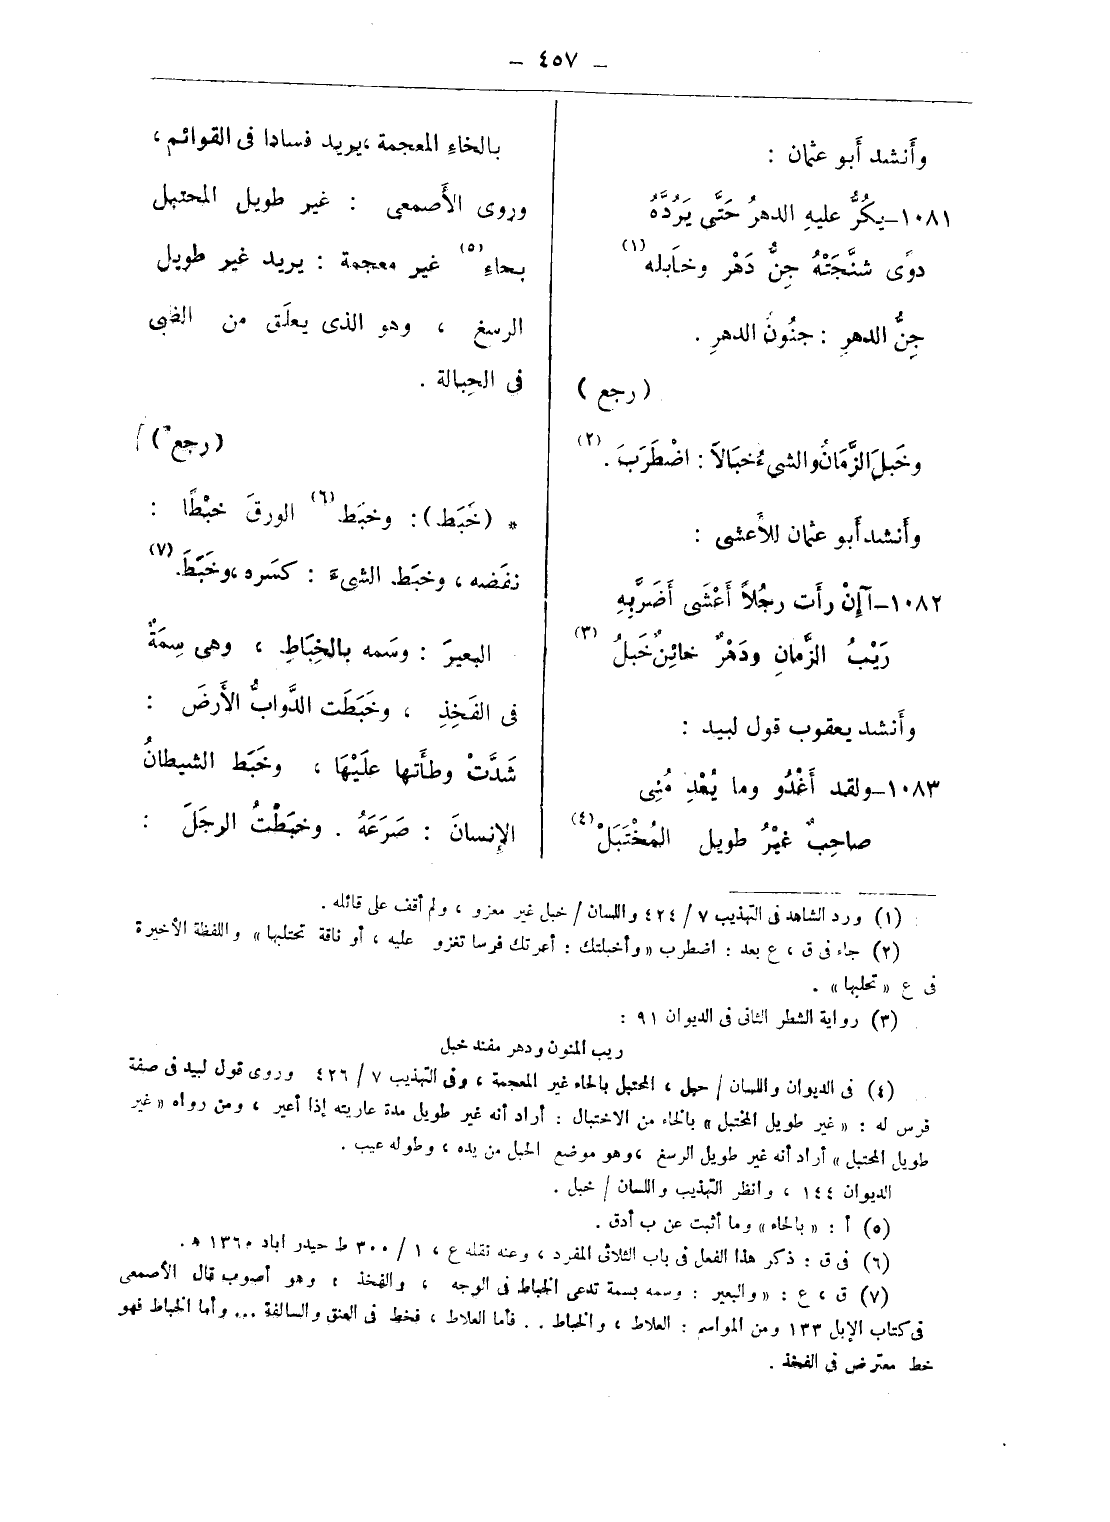 – ٤٥٧ –
وأَنشد أَبو عثمان :
١٠٨١–يكُرُّ عليهِ الدهرُ حَتَّى يَرُدَّهُ
دوًى شنَّجَتْهُ جنُّ دَهْر وخابله (١)
جِنُّ الدهرِ : جنُونُ الدهرِ .
( رجع )
وخَبلَ الزَّمَانُ والشىءُ خبَالاً : اضْطَرَبَ . (٢)
وأَنشد أَبو عثمان للأَعشى :
١٠٨٢–آإِنْ رأَت رجُلاً أَعْشَى أَضَرَّ بِهِ
رَيْبُ الزَّمانِ ودَهْرٌ خائِنٌ خَبلُ (٣)
وأَنشد يعقوب قول لبيد :
١٠٨٣–ولقد أَغْدُو وما يُعْدِ مُنِى
صاحِبٌ غيْرُ طويل المُخْتَبَلْ (٤)
بالخاءِ المعجمة ، يريد فسادا فى القوائم ،
وروى الأَصمعى : غير طويل المحتبل
بحاءٍ (٥) غير معجمة : يريد غير طويل
الرسغ ، وهو الذى يعلَق من الظبى
فى الحِبالة .
( رجع )
* (خَبَط) : وخبَط (٦) الورقَ خبْطًا :
نفَضه ، وخبَط الشىءَ : كسَره ، وخَبَطَ (٧)
البعيرَ : وسَمه بالخِبَاطِ ، وهى سِمَةٌ
فى الفَخِذِ ، وخَبَطَت الدَّوابُّ الأَرضَ :
شَدَّتْ وطأَتها علَيْهَا ، وخَبَط الشيطانُ
الإِنسانَ : صَرَعَهُ . وخبَطْتُ الرجَلَ :
(١) ورد الشاهد فى التهذيب ٧ / ٤٢٤ واللسان / خبل غير معزو ، ولم أقف على قائله .
(٢) جاء فى ق ، ع بعد : اضطرب « وأخبلتك : أعرتك فرسا تغزو عليه ، أو ناقة تحتلبها » واللفظة الأخيرة
فى ع « تحلبها » .
(٣) رواية الشطر الثانى فى الديوان ٩١ :
ريب المنون ودهر مفند خبل
(٤) فى الديوان واللسان / حبل ، المحتبل بالحاء غير المعجمة ، وفى التهذيب ٧ / ٤٢٦ وروى قول لبيد فى صفة
فرس له : « غير طويل المختبل » بالخاء من الاختبال : أراد أنه غير طويل مدة عاريته إذا أعير ، ومن رواه « غير
طويل المحتبل » أراد أنه غير طويل الرسغ ، وهو موضع الحبل من يده ، وطوله عيب .
الديوان ١٤٤ ، وانظر التهذيب واللسان / خبل .
(٥) أ : « بالحاء » وما أثبت عن ب أدق .
(٦) فى ق : ذكر هذا الفعل فى باب الثلاثى المفرد ، وعنه نقله ع ، ١ / ٣٠٠ ط حيدر اباد ١٣٦٠ هـ .
(٧) ق ، ع : « والبعير : وسمه بسمة تدعى الخباط فى الوجه ، والفخذ ؛ وهو أصوب قال الأصمعى
فى كتاب الإبل ١٣٣ ومن المواسم : العلاط ، والخباط . . فأما العلاط ، فخط فى العنق والسالفة ... وأما الخباط فهو
خط معترض فى الفخذ .